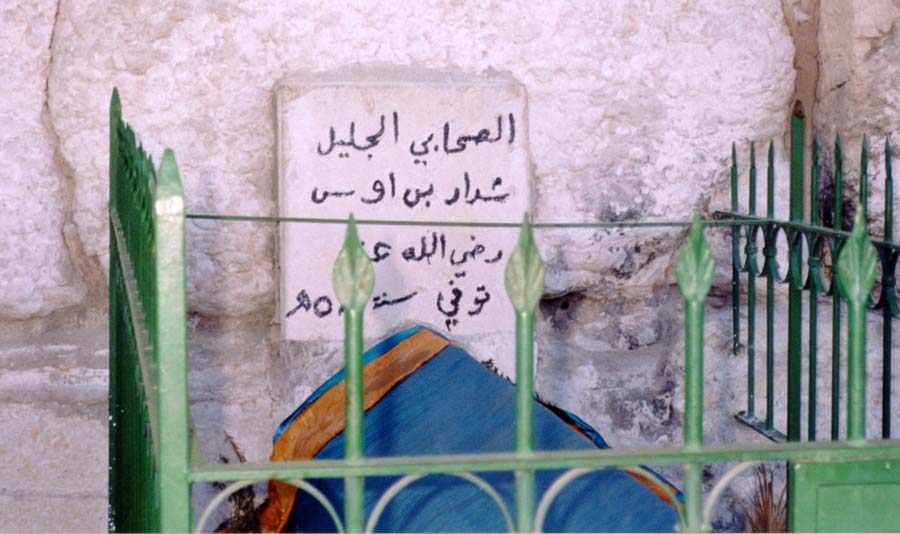 الصحابي الجليل
شداد بن اوس
رضي الله
توفي سنة